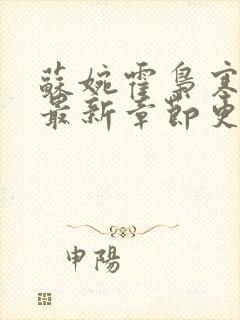 蘇婉霍梟寒
最新章節更
申陽